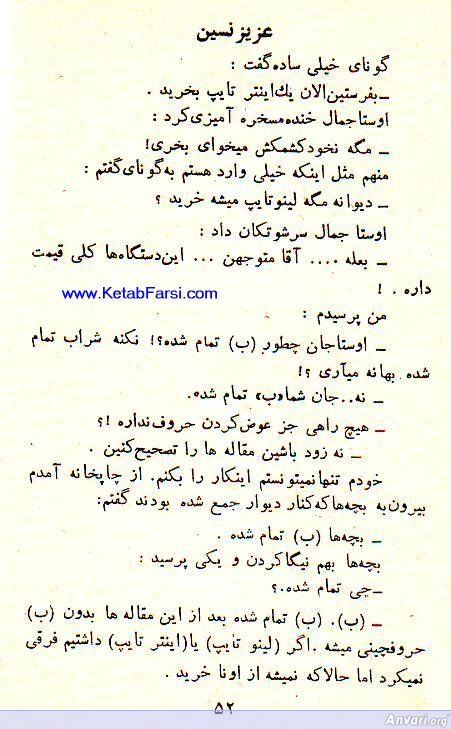 عزیز نسین
گونای خیلی ساده گفت :
ـ بفرستین الان یك اینتر تایپ بخرید .
اوستا جمال خنده مسخره آمیزی کرد :
ـ مگه نخود کشمکش میخوای بخری!
منهم مثل اینکه خیلی وارد هستم به گونای گفتم :
ـ دیوانه مگه لینو تایپ میشه خرید ؟
اوستا جمال سرشو تکان داد :
ـ بعله .... آقا متوجهن ... این دستگاه‌ها کلی قیمت
داره . !
www.KetabFarsi.com
من پرسیدم :
ـ اوستاجان چطور (ب) تمام شده؟! نکنه شراب تمام
شده بهانه میآری ؟!
ـ نه..جان شما «ب» تمام شده.
ـ هیچ راهی جز عوض کردن حروف نداره !؟
ـ نه زود باشین مقاله ها را تصحیح کنین .
خودم تنها نمیتونستم اینکار را بکنم. از چاپخانه آمدم
بیرون به بچه‌ها که کنار دیوار جمع شده بودند گفتم:
ـ بچه‌ها (ب) تمام شده .
بچه‌ها بهم نیگا کردن و یکی پرسید :
ـ چی تمام شده.؟
ـ (ب). (ب) تمام شده بعد از این مقاله ها بدون (ب)
حروفچینی میشه .اگر (لینو تایپ) یا (اینتر تایپ) داشتیم فرقی
نمیکرد اما حالا که نمیشه از اونا خرید .
۵۲
Anvari.org